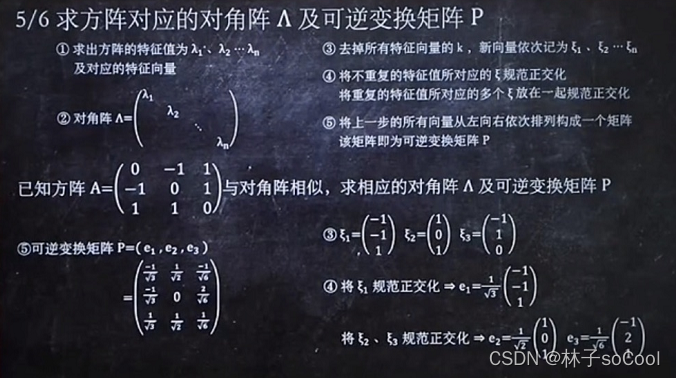 5/6 求方阵对应的对角阵 Λ 及可逆变换矩阵 P
① 求出方阵的特征值为 λ₁、λ₂ ⋯ λₙ
及对应的特征向量
② 对角阵 Λ=(λ₁ λ₂ ⋱ λₙ)
③ 去掉所有特征向量的 k ，新向量依次记为 ξ₁ 、ξ₂ ⋯ ξₙ
④ 将不重复的特征值所对应的 ξ 规范正交化
将重复的特征值所对应的多个 ξ 放在一起规范正交化
⑤ 将上一步的所有向量从左向右依次排列构成一个矩阵
该矩阵即为可逆变换矩阵 P
已知方阵 A=(0 −1 1; −1 0 1; 1 1 0)与对角阵相似，求相应的对角阵 Λ 及可逆变换矩阵 P
⑤可逆变换矩阵 P=(e₁ , e₂ , e₃)
=(−1/√3 1/√2 −1/√6; −1/√3 0 2/√6; 1/√3 1/√2 1/√6)
③ ξ₁=(−1; −1; 1) ξ₂=(1; 0; 1) ξ₃=(−1; 1; 0)
④ 将 ξ₁ 规范正交化 ⇒ e₁=1/√3(−1; −1; 1)
将 ξ₂ 、ξ₃ 规范正交化 ⇒ e₂=1/√2(1; 0; 1) e₃=1/√6(−1; 2; 1)
CSDN @林子soCool